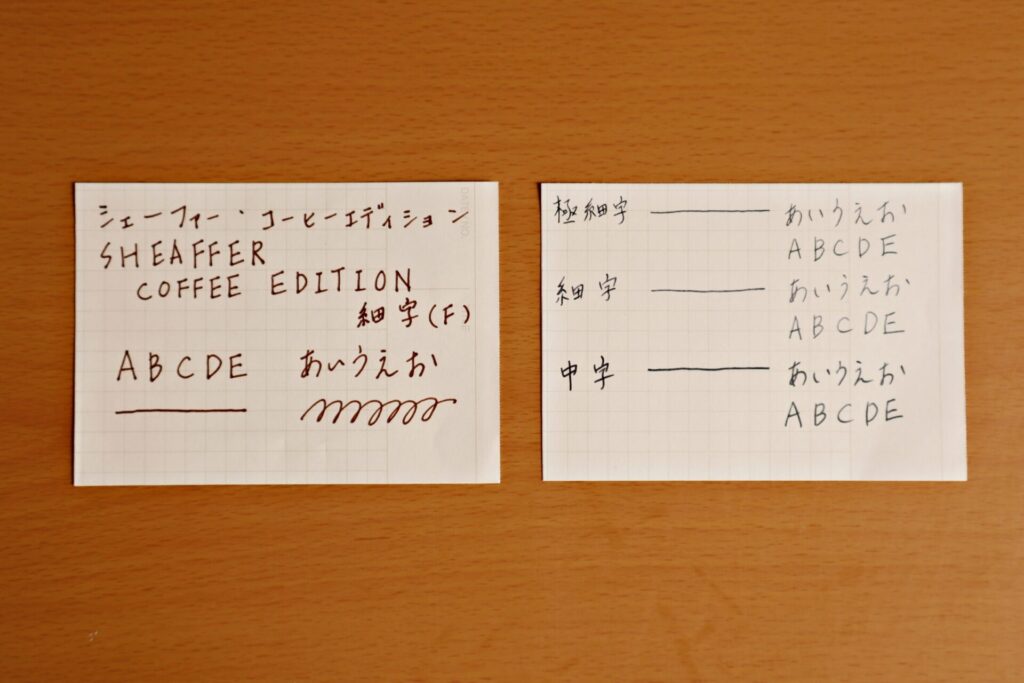 シェーファー・コーヒーエディション
SHEAFFER
COFFEE EDITION
細字(F)
ABCDE あいうえお
極細字 あいうえお
ABCDE
細字 あいうえお
ABCDE
中字 あいうえお
ABCDE